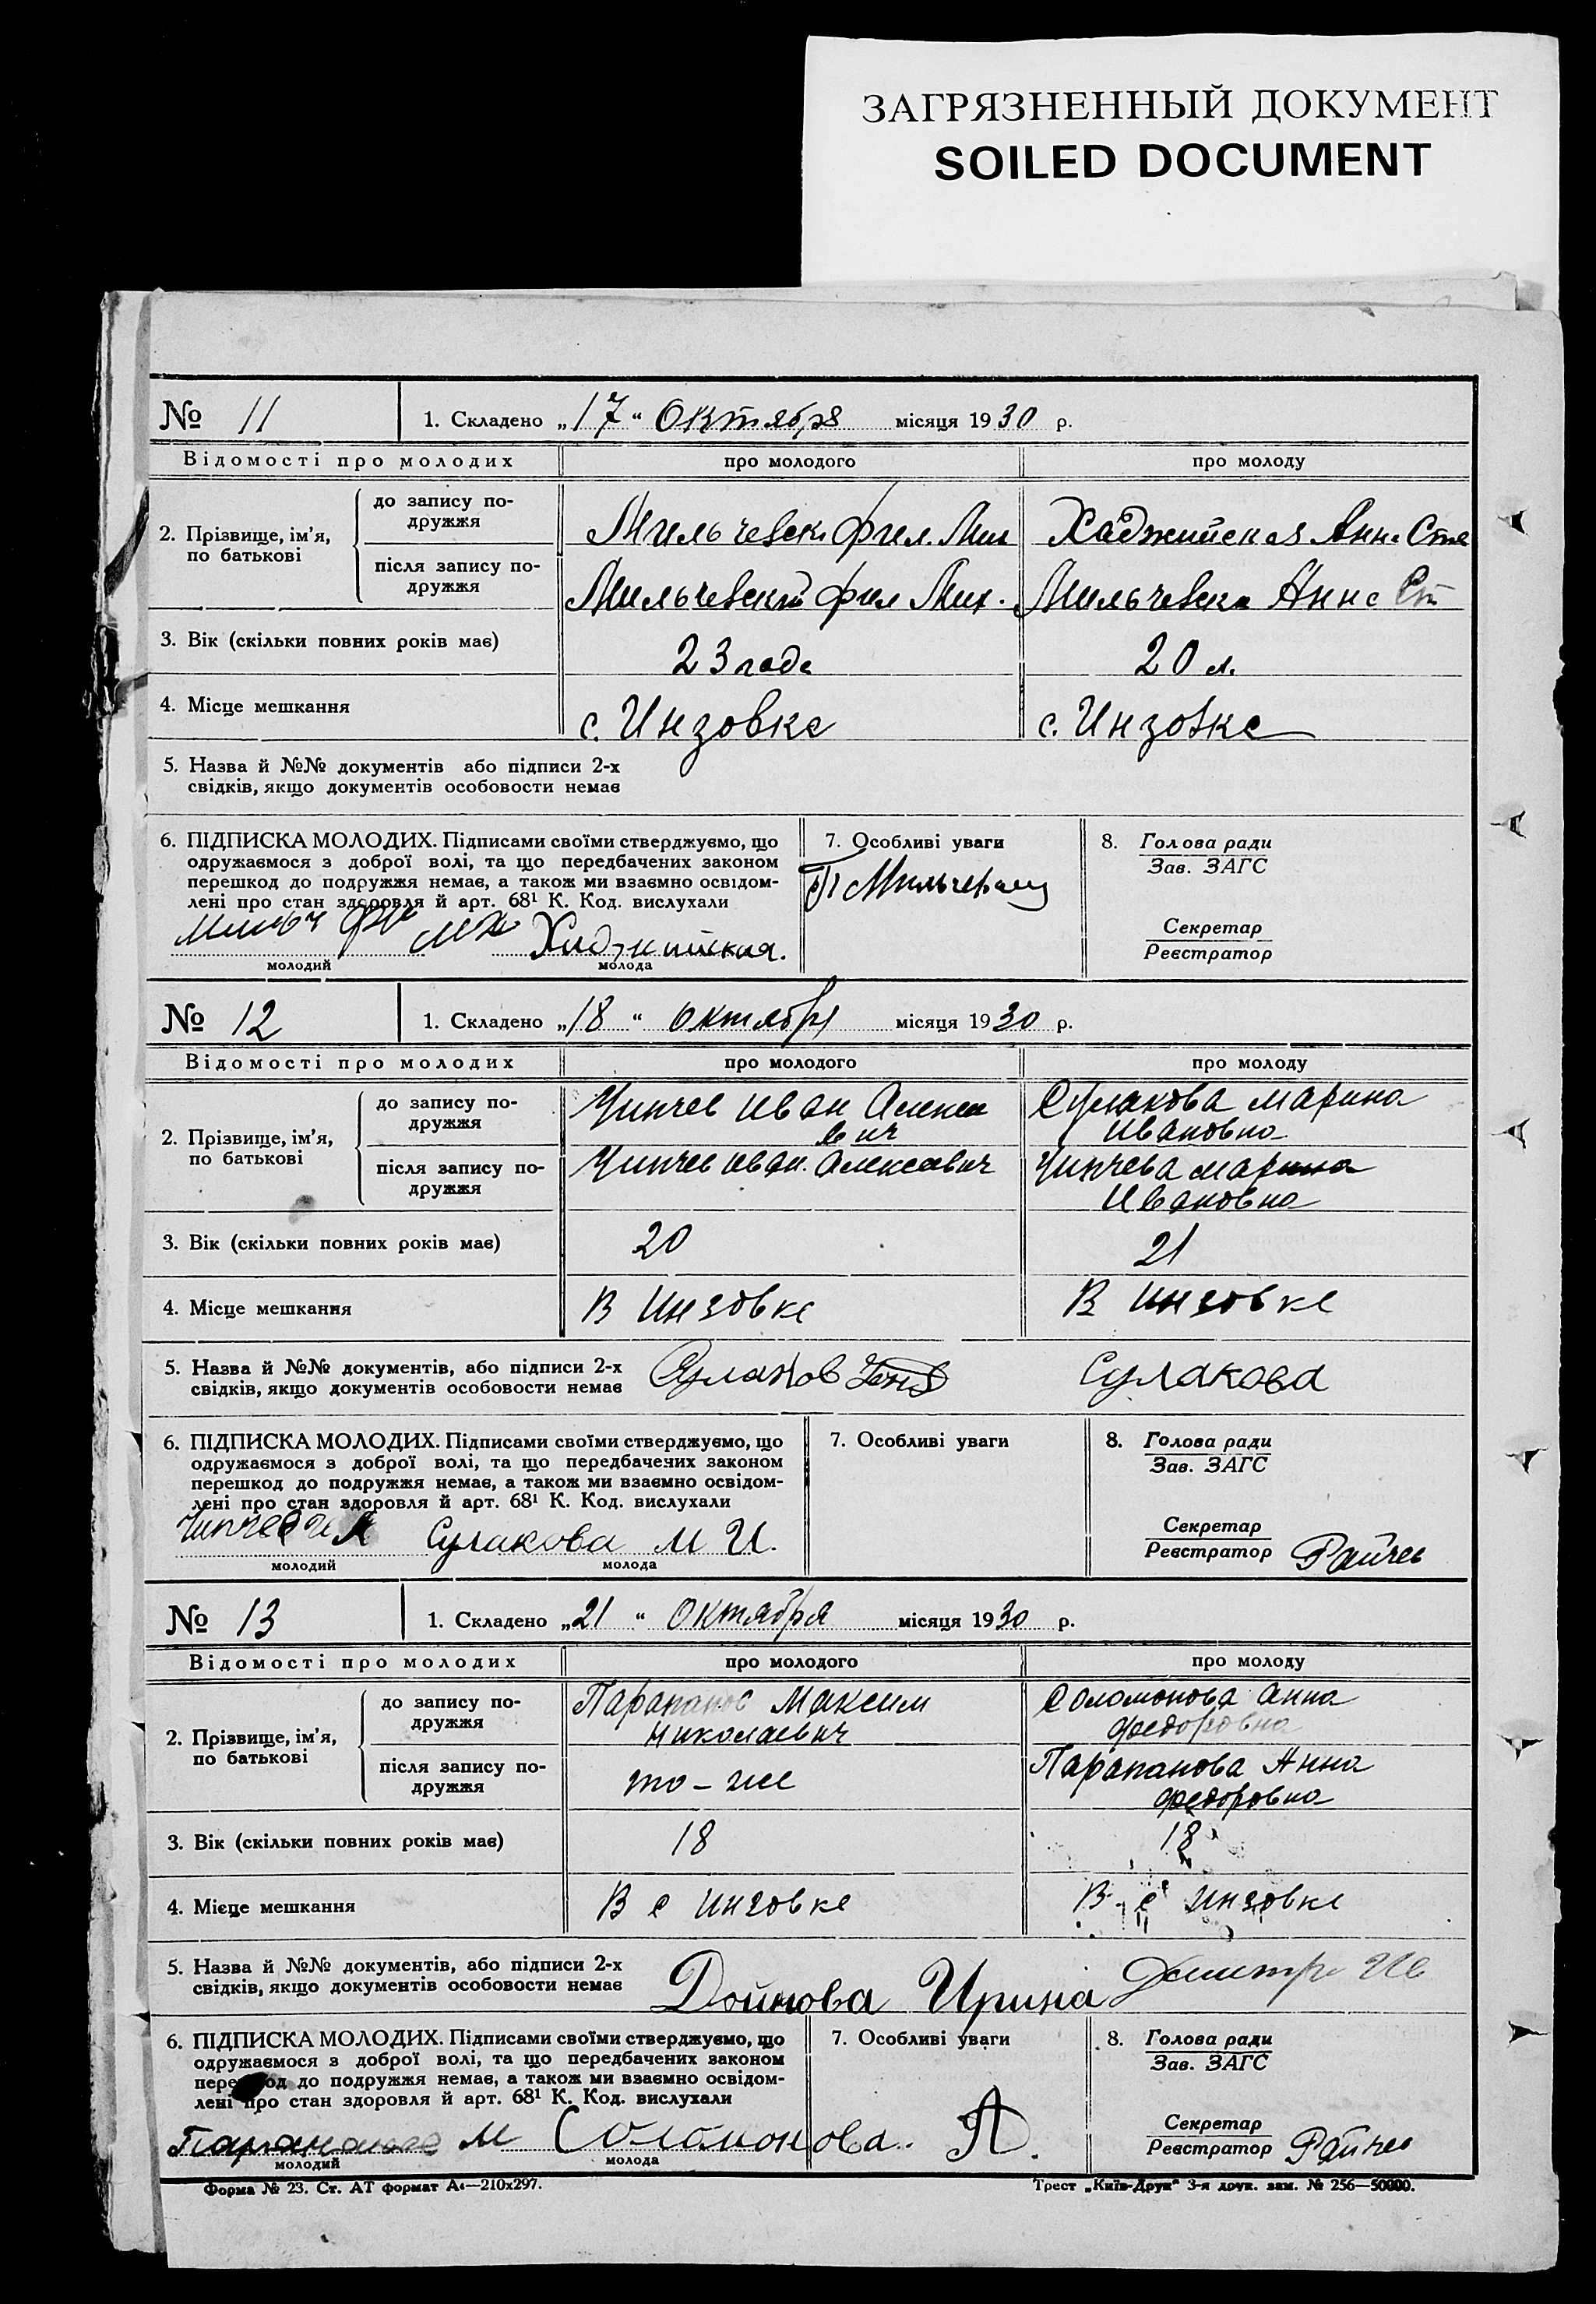 ЗАГРЯЗНЕННЫЙ ДОКУМЕНТ
SOILED DOCUMENT
№ 11 1. Складено „17“ Октября місяця 1930 р.
Відомості про молодих про молодого про молоду
2. Прізвище, ім’я, по батькові
до запису подружжя Мильчевск. Фил. Мих Хаджийская Анна Сте
після запису подружжя Мильчевский Фил Мих. Мильчевска Анна Ст
3. Вік (скільки повних років має) 23 года 20 л.
4. Місце мешкання с. Инзовке с. Инзовке
5. Назва й №№ документів або підписи 2-х
свідків, якщо документів особовости немає
6. ПІДПИСКА МОЛОДИХ. Підписами своїми стверджуємо, що
одружаємося з доброї волі, та що передбачених законом
перешкод до подружжя немає, а також ми взаємно освідом-
лені про стан здоровля й арт. 68¹ К. Код. вислухали
Хаджийская.
молодий молода
7. Особливі уваги
8. Голова ради
Зав. ЗАГС
Секретар
Реєстратор
№ 12 1. Складено „18“ октября місяця 1930 р.
Відомості про молодих про молодого про молоду
2. Прізвище, ім’я, по батькові
до запису подружжя Чипчев Иван Алексеевич Сулакова Марина Ивановна
після запису подружжя Чипчев Иван. Алексеевич Чипчева Марина Ивановна
3. Вік (скільки повних років має) 20 21
4. Місце мешкання В Инзовке В Инзовке
5. Назва й №№ документів, або підписи 2-х
свідків, якщо документів особовости немає Сулаков Сулакова
6. ПІДПИСКА МОЛОДИХ. Підписами своїми стверджуємо, що
одружаємося з доброї волі, та що передбачених законом
перешкод до подружжя немає, а також ми взаємно освідом-
лені про стан здоровля й арт. 68¹ К. Код. вислухали
Чипчев И А Сулакова М И.
молодий молода
7. Особливі уваги
8. Голова ради
Зав. ЗАГС
Секретар
Реєстратор Райчев
№ 13 1. Складено „21“ Октября місяця 1930 р.
Відомості про молодих про молодого про молоду
2. Прізвище, ім’я, по батькові
до запису подружжя Парапанов Максим Николаевич Соломонова Анна Федоровна
після запису подружжя то-же Парапанова Анна Федоровна
3. Вік (скільки повних років має) 18 18
4. Місце мешкання В с Инзовке В с Инзовке
5. Назва й №№ документів, або підписи 2-х
свідків, якщо документів особовости немає Дойнова Ирина
6. ПІДПИСКА МОЛОДИХ. Підписами своїми стверджуємо, що
одружаємося з доброї волі, та що передбачених законом
перешкод до подружжя немає, а також ми взаємно освідом-
лені про стан здоровля й арт. 68¹ К. Код. вислухали
Парапанов М Соломонова. А.
молодий молода
7. Особливі уваги
8. Голова ради
Зав. ЗАГС
Секретар
Реєстратор Райчев
Форма № 23. Ст. АТ формат А₄—210х297. Трест „Київ-Друк“ 3-я друк. зам. № 256—50000.